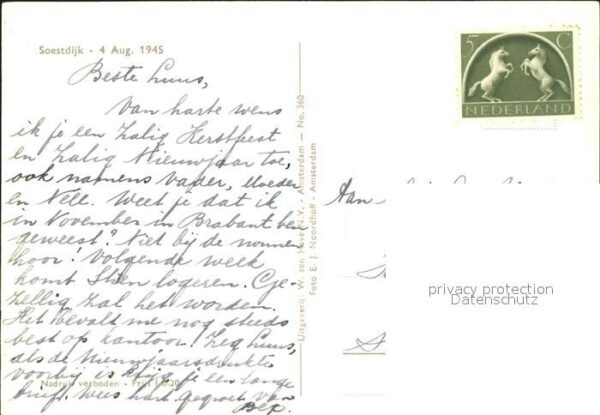 Soestdijk - 4 Aug. 1945
Beste Luus,
Van harte wens
ik je een Zalig Kerstfeest
en Zalig Nieuwjaar toe,
ook namens vader, Moeder
en Nell. Weet je dat ik
in November in Brabant ben
geweest? Niet bij de nonnen
hoor! Volgende week
komt Stien logeren. Ge-
zellig zal het worden.
Het bevalt me nog steeds
best op kantoor! Zeg Luus,
als de Nieuwjaarsdrukte
voorbij is krijg je een lange
brief. Wees hart. gegroet van
Bep.
Nadruk verboden - Prijs f 0.20
Uitgeverij: W. ten Have N.V. - Amsterdam — No. 360
Foto E. J. Noordhoff - Amsterdam
5 C
NEDERLAND
Aan
privacy protection
Datenschutz